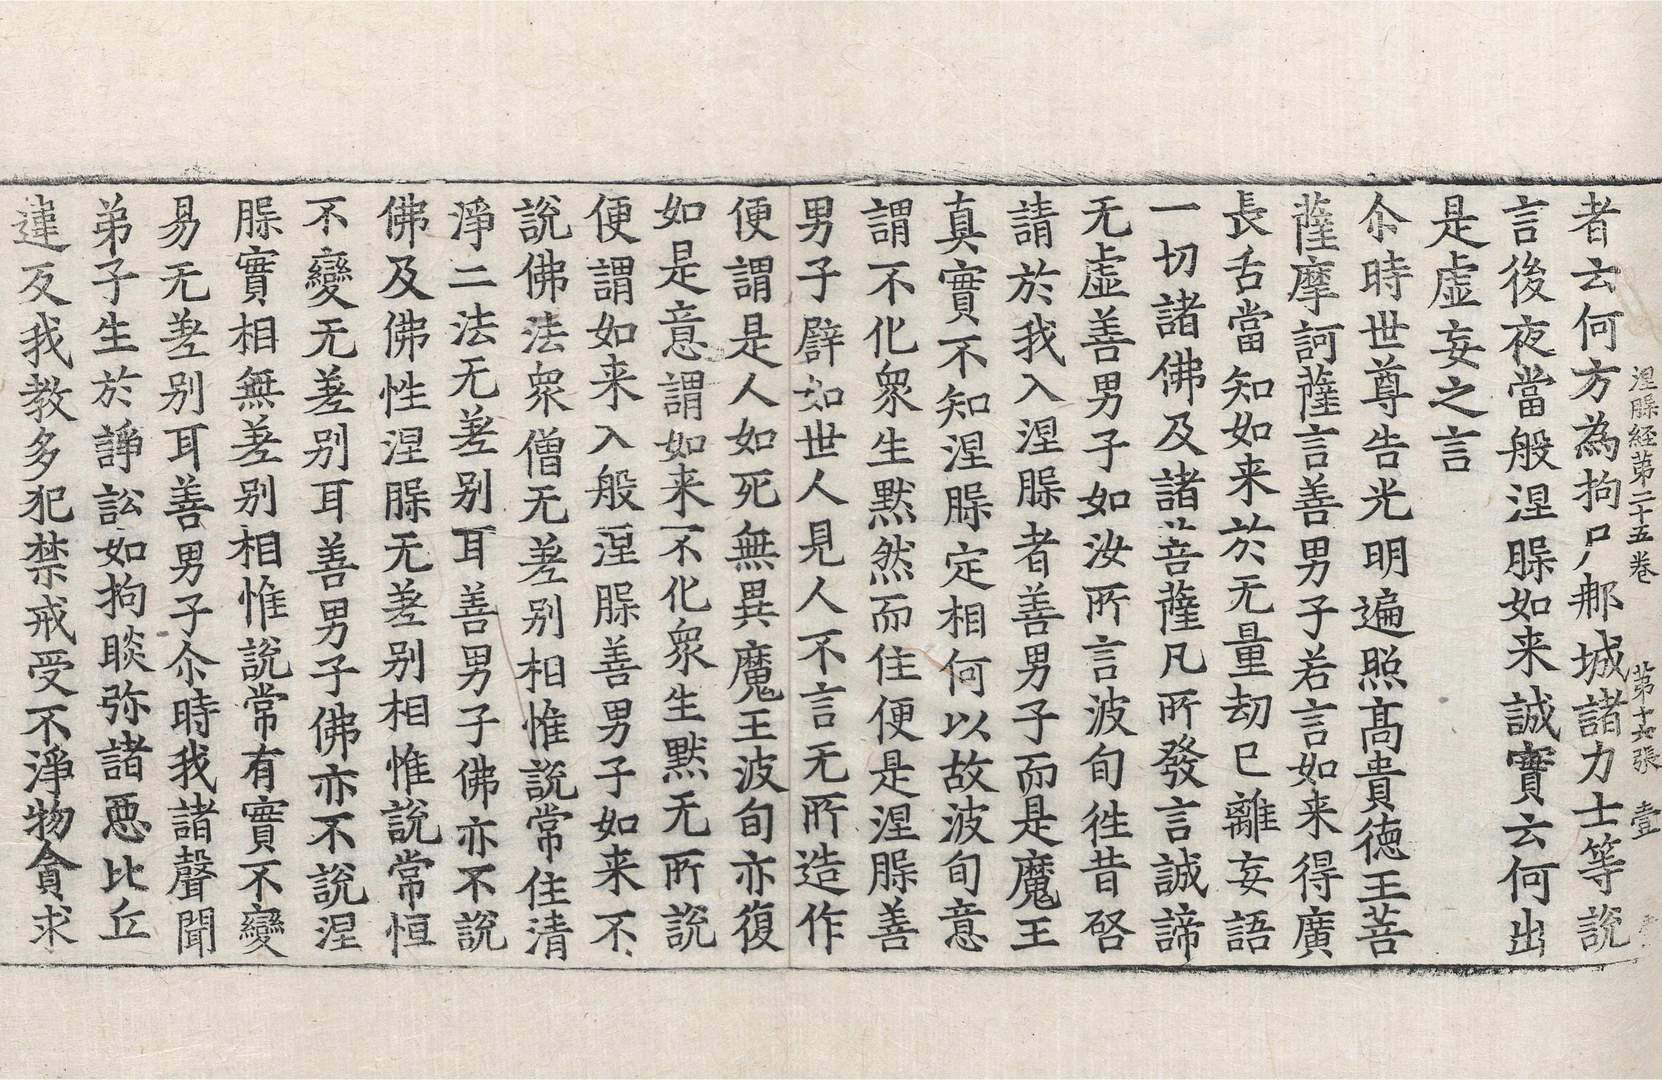 涅槃経苐二十五卷 苐十六張 壹
者云何方為拘尸𨚗城諸力士等説
言後夜當般涅槃如来誠實云何出
是虚妄之言
尒時世尊告光明遍照髙貴徳王菩
薩摩訶薩言善男子若言如来得廣
長舌當知如来於无量劫已離妄語
一切諸佛及諸菩薩凡所發言誠諦
无虚善男子如汝所言波旬徃昔啓
請於我入涅槃者善男子而是魔王
真實不知涅槃定相何以故波旬意
謂不化衆生黙然而住便是涅槃善
男子譬如世人見人不言无所造作
便謂是人如死無異魔王波旬亦復
如是意謂如来不化衆生黙无所説
便謂如来入般涅槃善男子如来不
説佛法衆僧无差别相惟説常住清
淨二法无差别耳善男子佛亦不説
佛及佛性涅槃无差别相惟説常恒
不變无差别耳善男子佛亦不説涅
槃實相無差别相惟説常有實不變
易无差别耳善男子尒時我諸聲聞
弟子生於諍訟如拘睒弥諸惡比丘
違反我教多犯禁戒受不淨物貪求